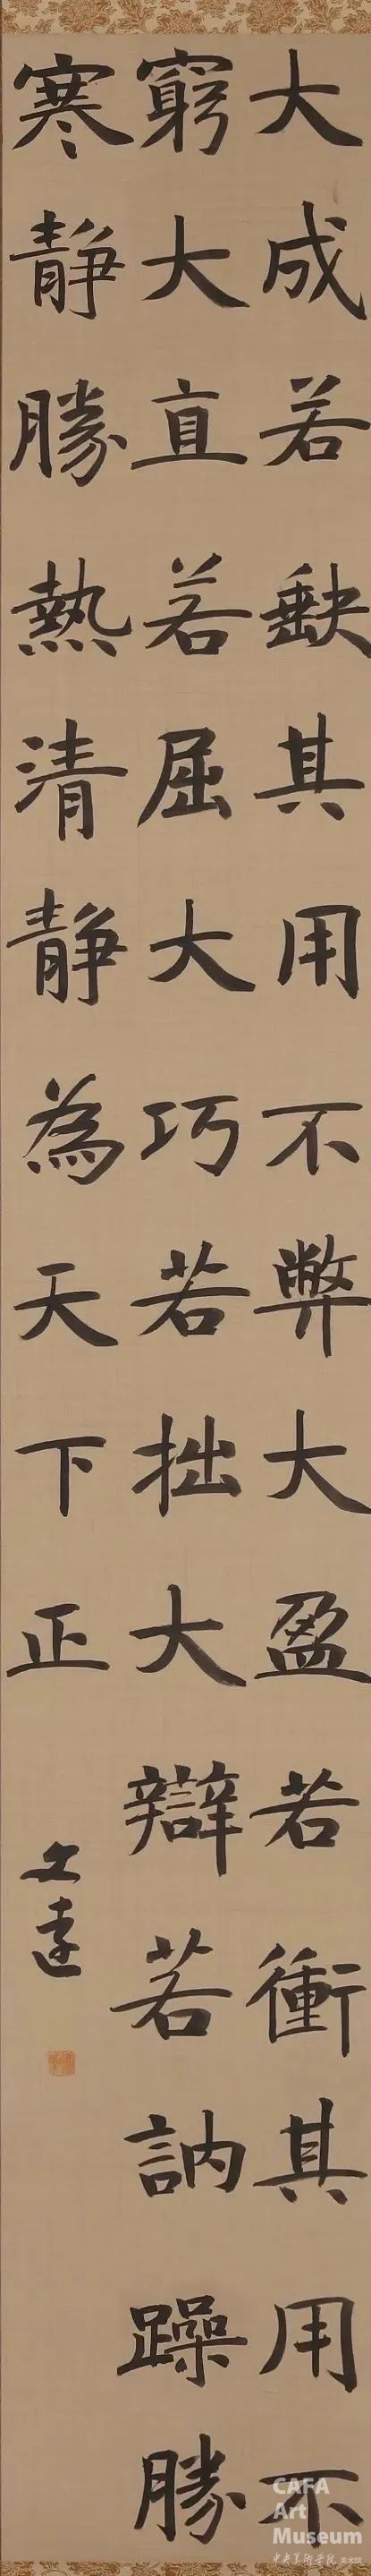 大成若缺其用不弊大盈若衝其用不
窮大直若屈大巧若拙大辯若訥躁勝
寒靜勝熱清靜為天下正
CAFA
Art
Museum
中央美術學院 美术馆